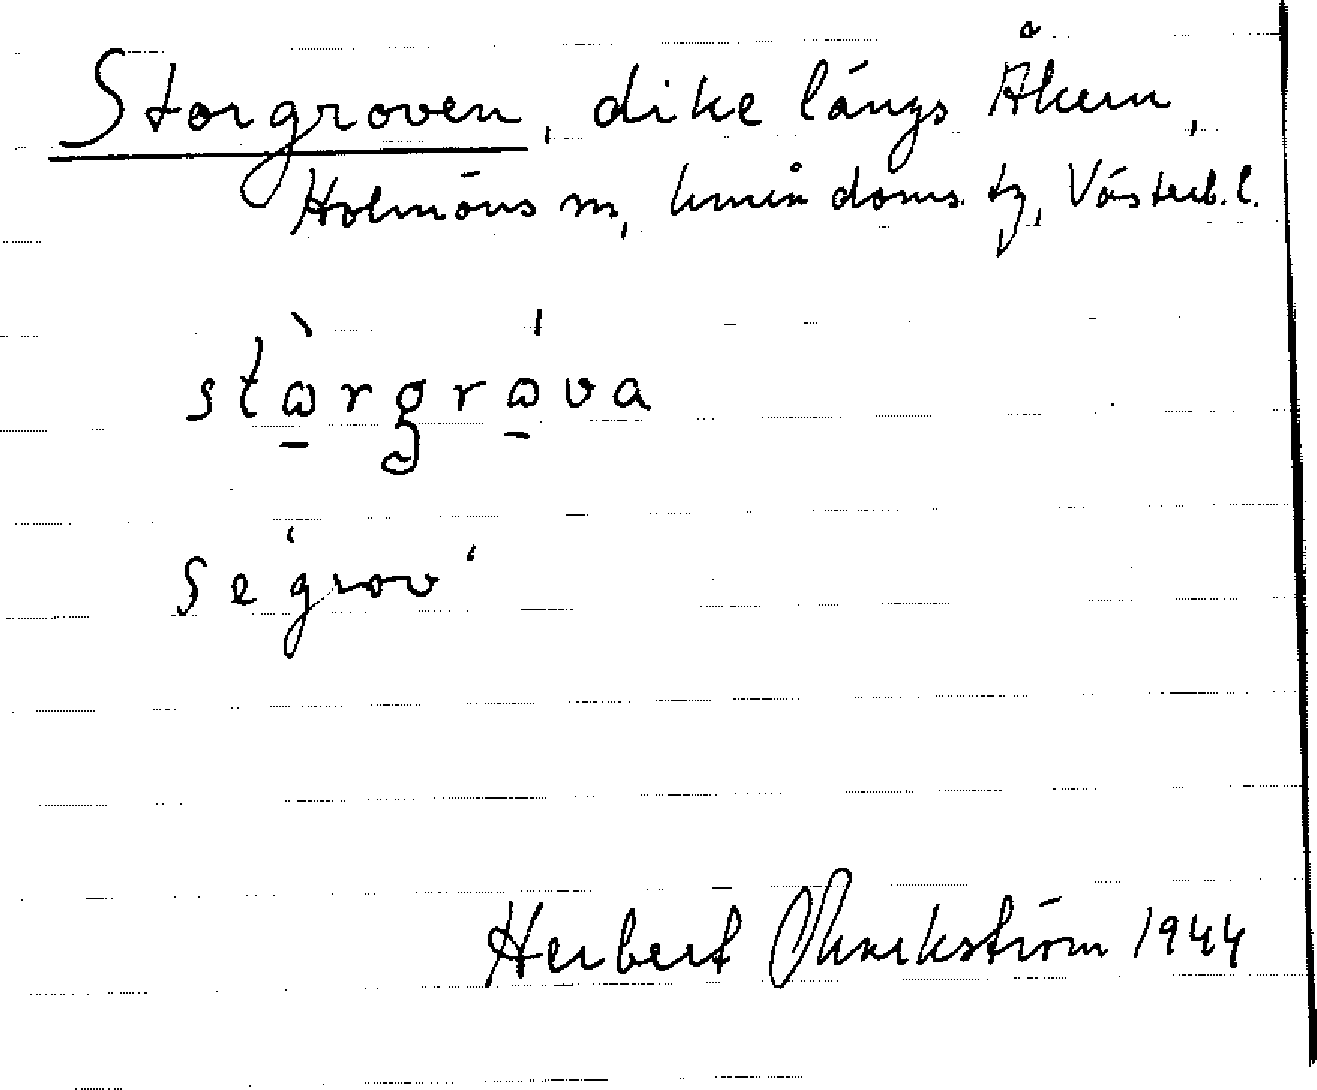 Storgroven, dike längs Åkern,
Holmöns sn, Umeå doms. tg, Västerb. l.
stὼ̱rgrώ̱va
Se 'grov'
Herbert Markström 1944